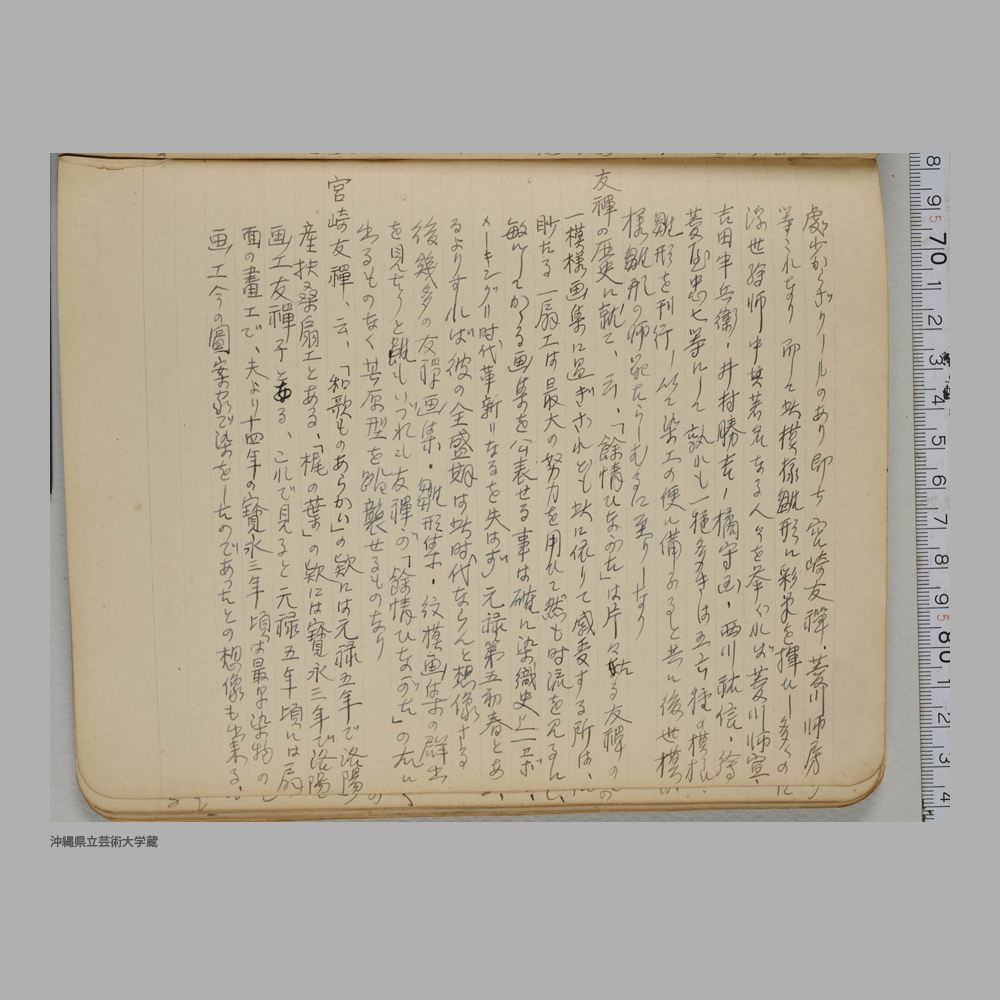 劇しからざりしルのあり即ち宮崎友禅、菱川師房
等これなり而して此模様雛形に彩筆を揮ひし多くの
浮世絵師中其著名なる人々を挙ぐれば菱川師宣、
吉田半兵衛・井村勝吉・橘守国・西川祐信・
菱屋忠七等にして数れも一種多きは五六種の模様
雛形を刊行して染工の便に備ふると共に後世模
様雛形の師範たらしむるに至りしなり
友禅の歴史に就て、云、「餘情ひなかた」は片々たる友禅の
一模様画集に過ぎざれども此に依りて感受する所は、
眇たる一扇工は最大の努力を用ひて然も時流を見るに
敏にしてかゝる画集を公表せる事は確に染織史上一エポ
メーキング(時代革新)なるを失はず元禄第五初春とあ
るよりすれば彼の全盛期は此時代ならんと想像さる
後幾多の友禅画集・雛形集・紋模画集等の群出
を見たりと雖もいづれも友禅の「餘情ひながた」の右に
出るものなく其原型を踏襲せるものなり
宮崎友禅、云、「和歌ものあらかひ」の欵には元禄五年で洛陽
産扶桑扇工とある、「梶の葉」の欵には寶永三年で洛陽
画工友禅子とある、これで見ると元禄五年頃には扇
面の畫工で、夫より十四年の寶永三年頃は最早染物の
画工今の圖案家で染をしたのであったとの想像も出来る、
8 9 70 1 2 3 4 5 6 7 8 9 80 1 2 3 4
沖縄県立芸術大学蔵